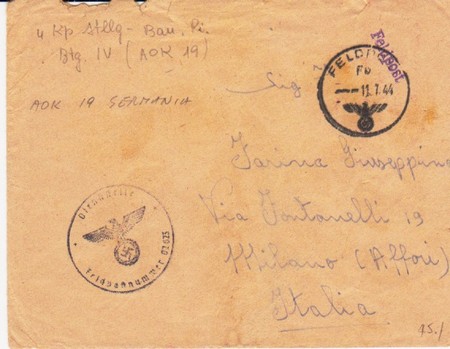 4 Kp Stllg - Bau. Pi.
Btg IV (AOK 19)
AOK 19 GERMANIA
Feldpost
FELDPOST
Fb
11.7.44
Sig
Farina Giuseppina
Via Fontanelli 19
Milano (Affori)
Italia
Dienststelle
Feldpostnummer 02025
15./